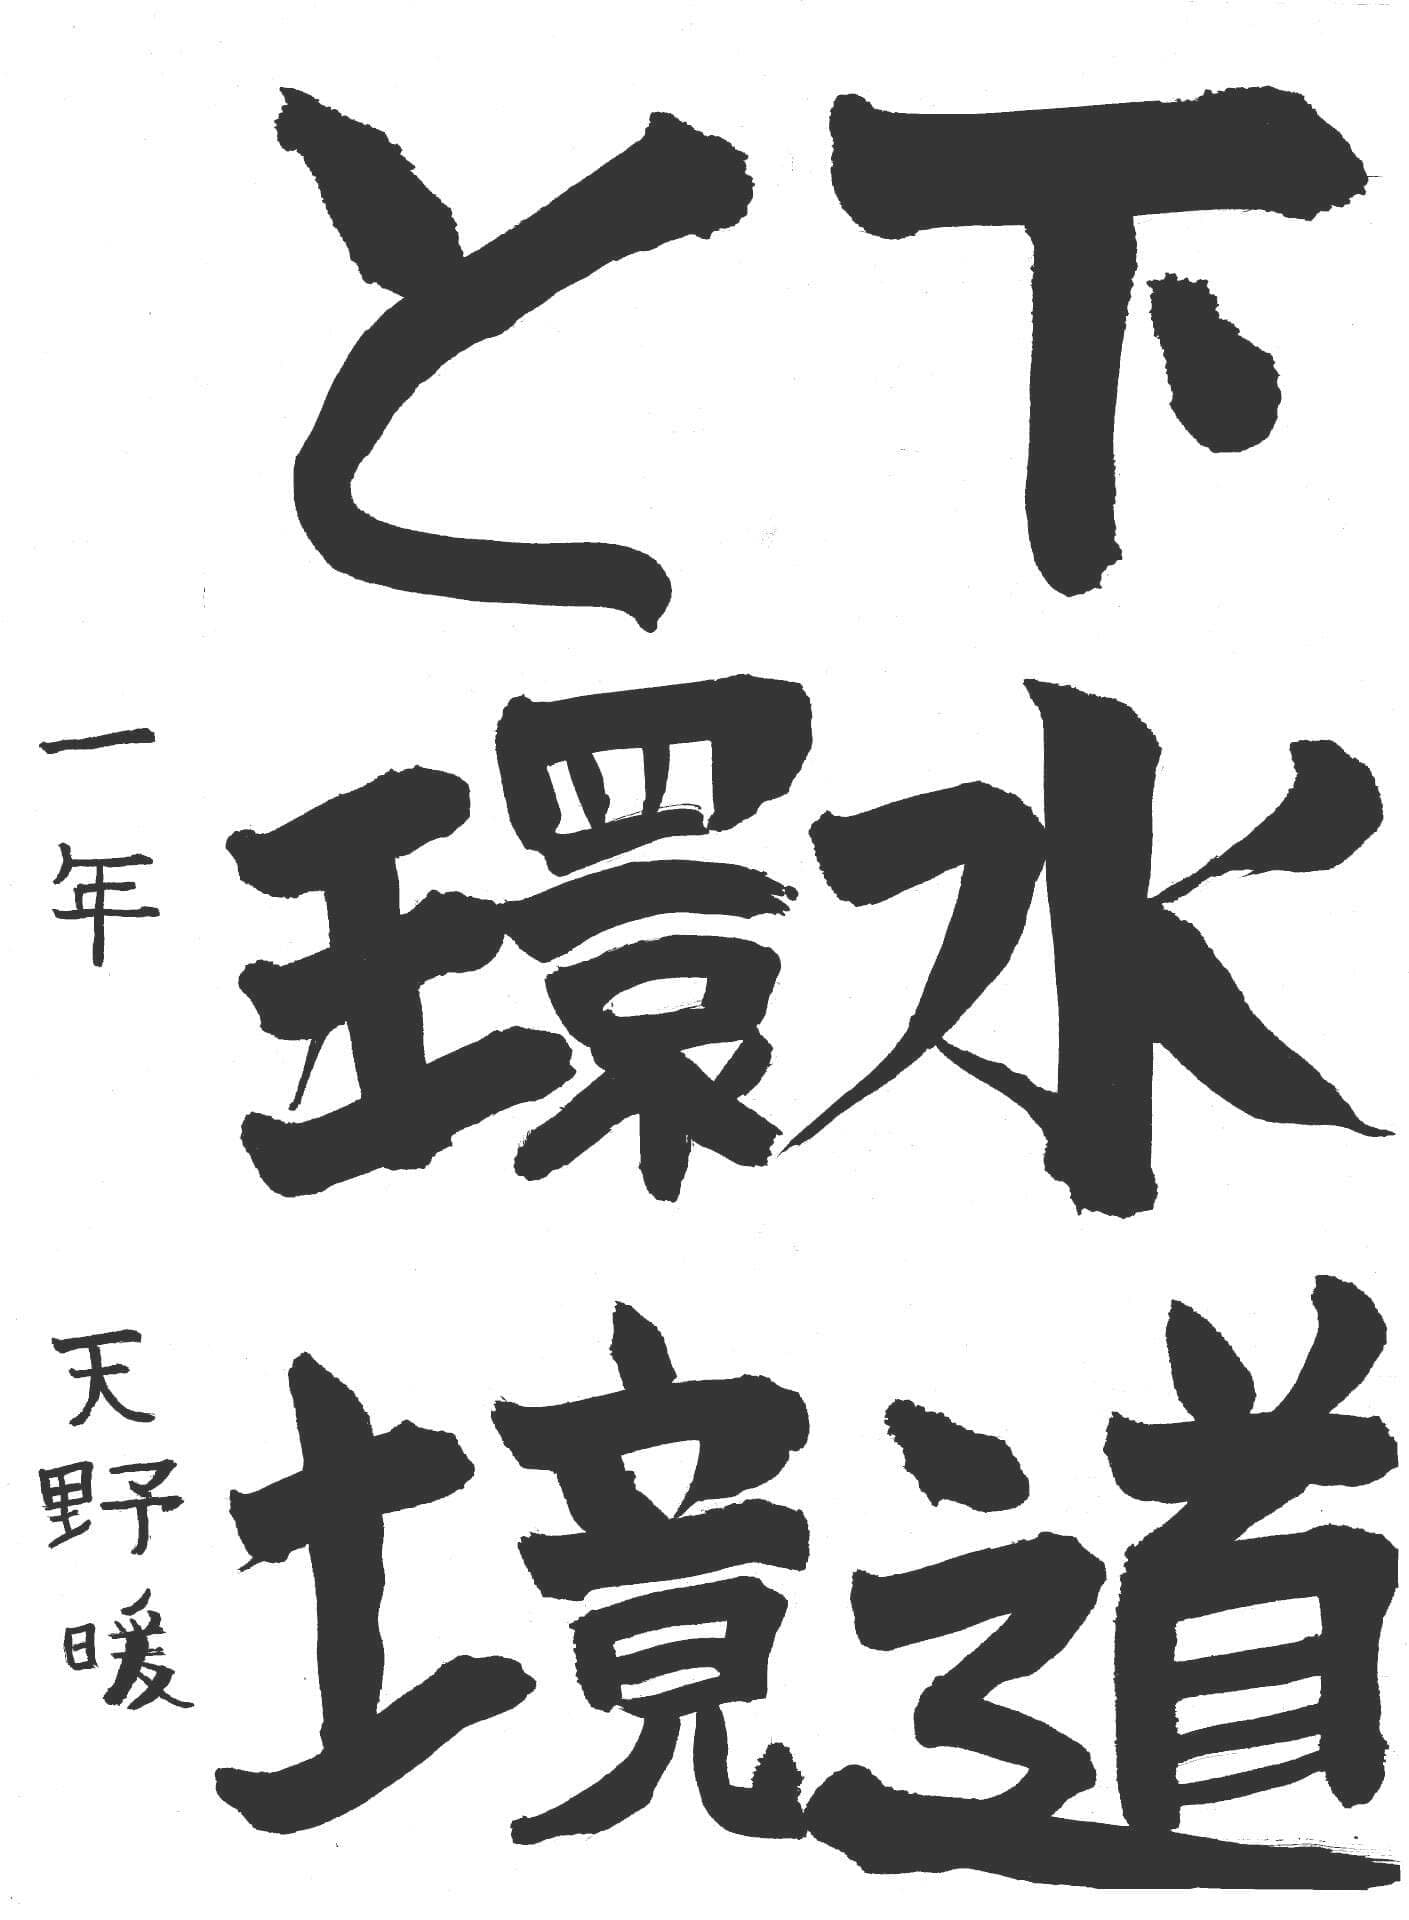 下水道
と環境
一年 天野暖